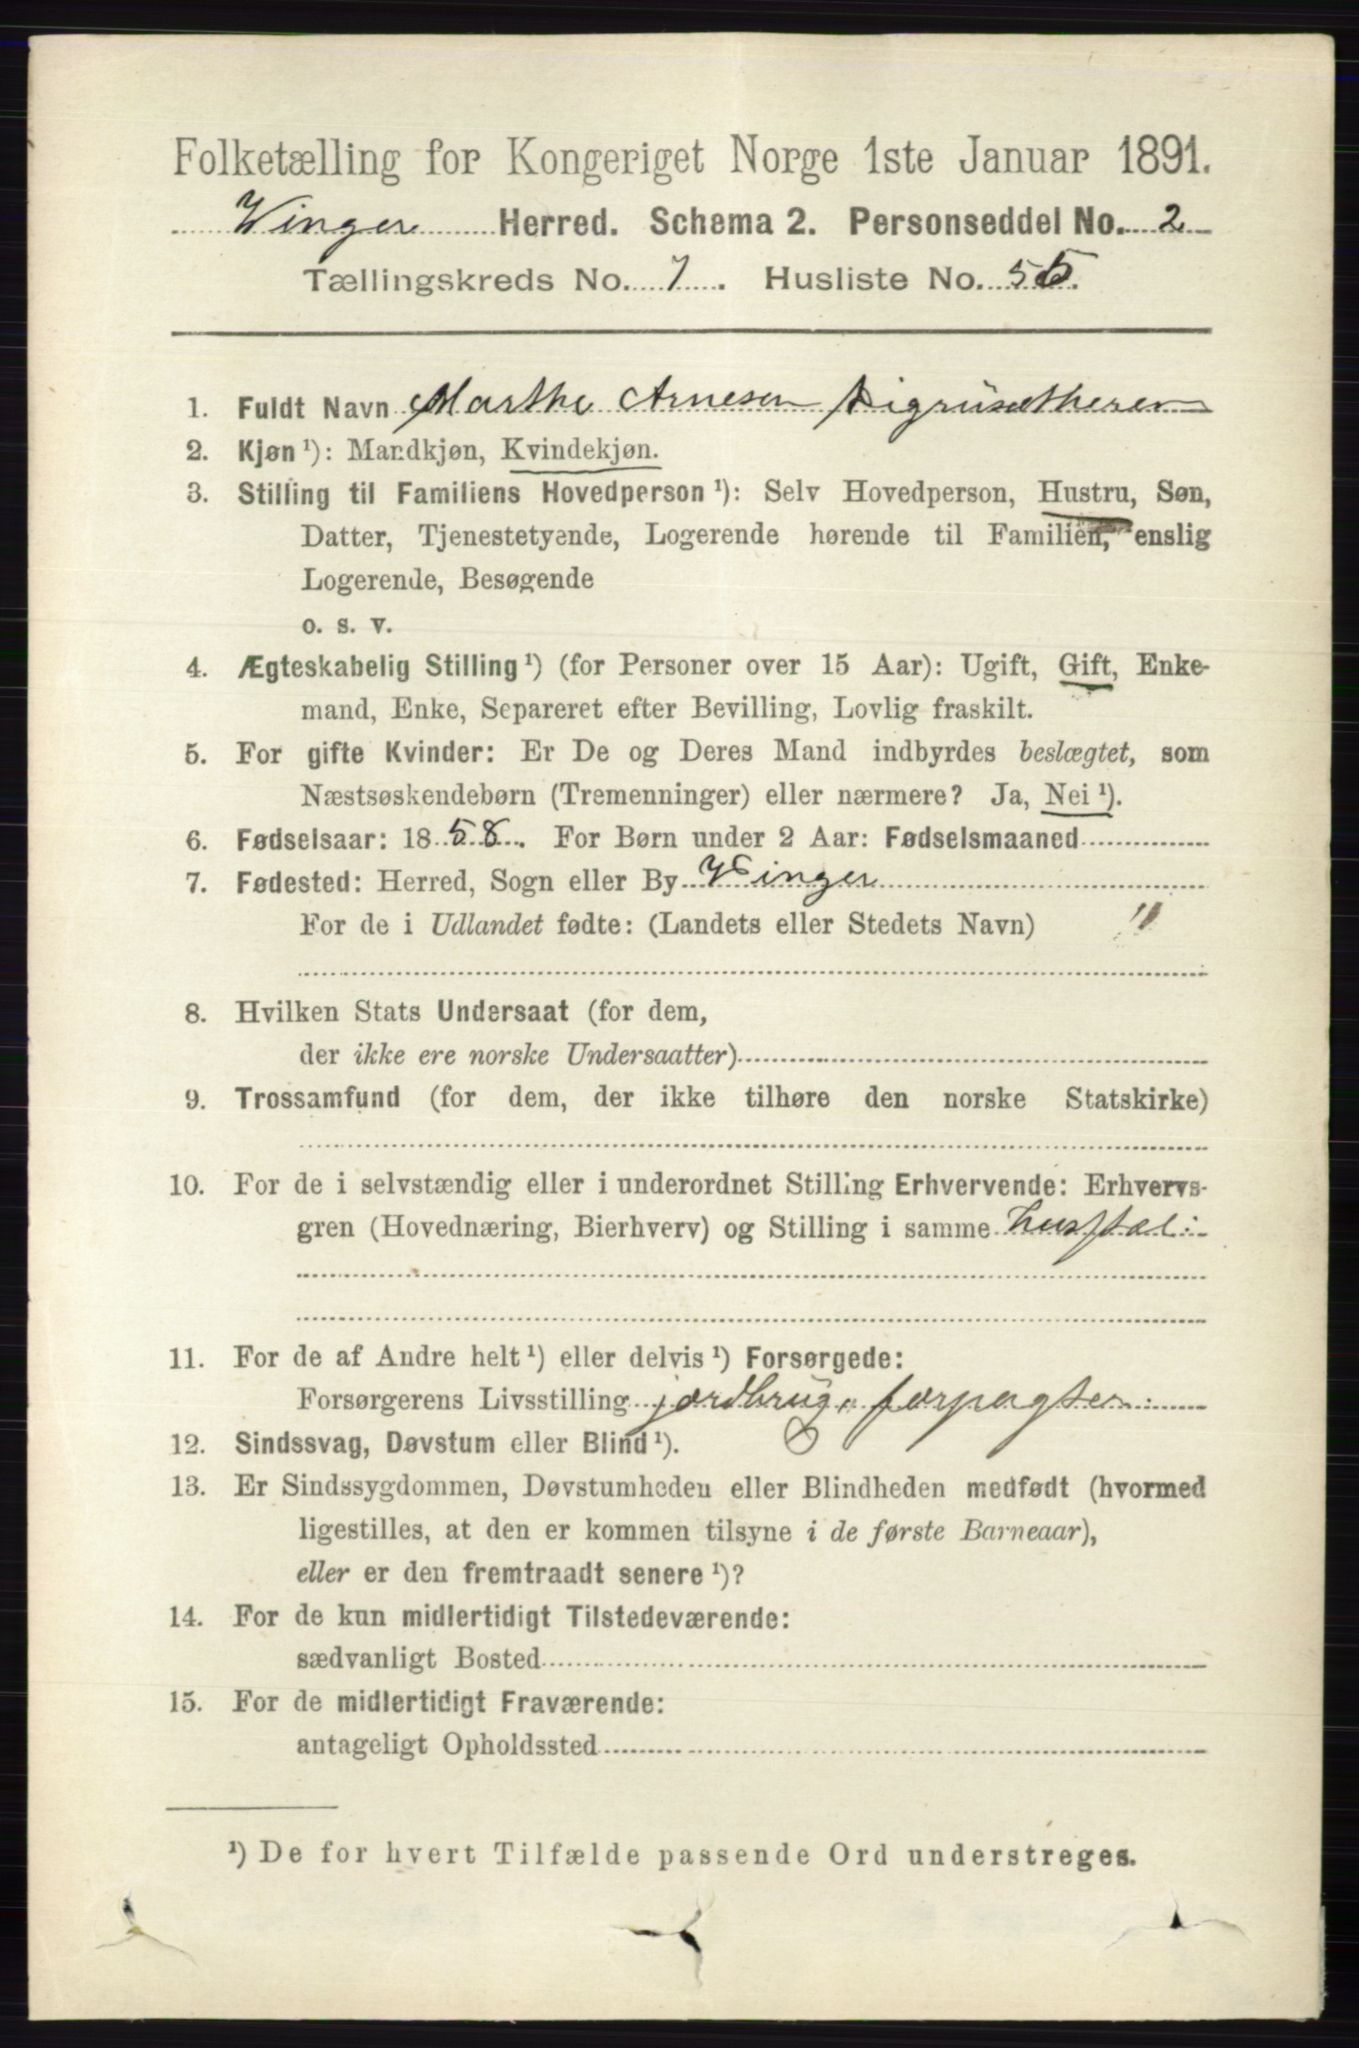 Folketælling for Kongeriget Norge 1ste Januar 1891.
Vinger Herred. Schema 2. Personseddel No. 2
Tællingskreds No. 7. Husliste No. 55.
1. Fuldt Navn Marthe Arnesen
2. Kjøn ¹): Mandkjøn, Kvindekjøn.
3. Stilling til Familiens Hovedperson ¹): Selv Hovedperson, Hustru, Søn,
Datter, Tjenestetyende, Logerende hørende til Familien, enslig
Logerende, Besøgende
o. s. v.
4. Ægteskabelig Stilling ¹) (for Personer over 15 Aar): Ugift, Gift, Enke-
mand, Enke, Separeret efter Bevilling, Lovlig fraskilt.
5. For gifte Kvinder: Er De og Deres Mand indbyrdes beslægtet, som
Næstsøskendebørn (Tremenninger) eller nærmere? Ja, Nei ¹).
6. Fødselsaar: 1858. For Børn under 2 Aar: Fødselsmaaned
7. Fødested: Herred, Sogn eller By Vinger
For de i Udlandet fødte: (Landets eller Stedets Navn) "
8. Hvilken Stats Undersaat (for dem,
der ikke ere norske Undersaatter)
9. Trossamfund (for dem, der ikke tilhøre den norske Statskirke)
10. For de i selvstændig eller i underordnet Stilling Erhvervende: Erhvervs-
gren (Hovednæring, Bierhverv) og Stilling i samme husstel:
11. For de af Andre helt ¹) eller delvis ¹) Forsørgede:
Forsørgerens Livsstilling jordbrug, forpagter.
12. Sindssvag, Døvstum eller Blind ¹).
13. Er Sindssygdommen, Døvstumheden eller Blindheden medfødt (hvormed
ligestilles, at den er kommen tilsyne i de første Barneaar),
eller er den fremtraadt senere ¹)?
14. For de kun midlertidigt Tilstedeværende:
sædvanligt Bosted
15. For de midlertidigt Fraværende:
antageligt Opholdssted
¹) De for hvert Tilfælde passende Ord understreges.